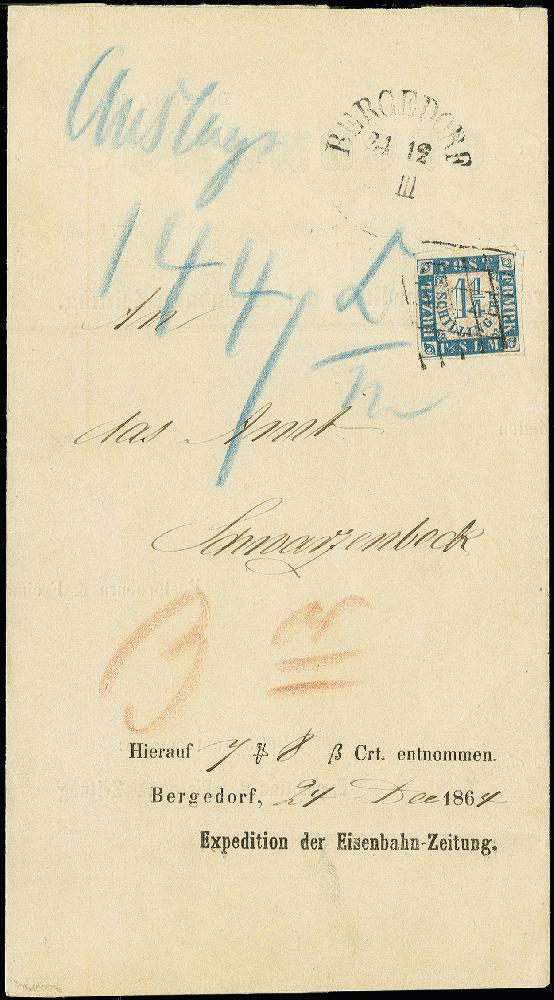 Auslage
BERGEDORF
24 12
III
144
POST
HRZGL
FRMRK
1¼
SCHILLING
1⅓ S. L. M.
An
das Amt
Schwarzenbeck
Hierauf 7 ₰ 8 ß Crt. entnommen.
Bergedorf, 24 Dec 1864
Expedition der Eisenbahn-Zeitung.